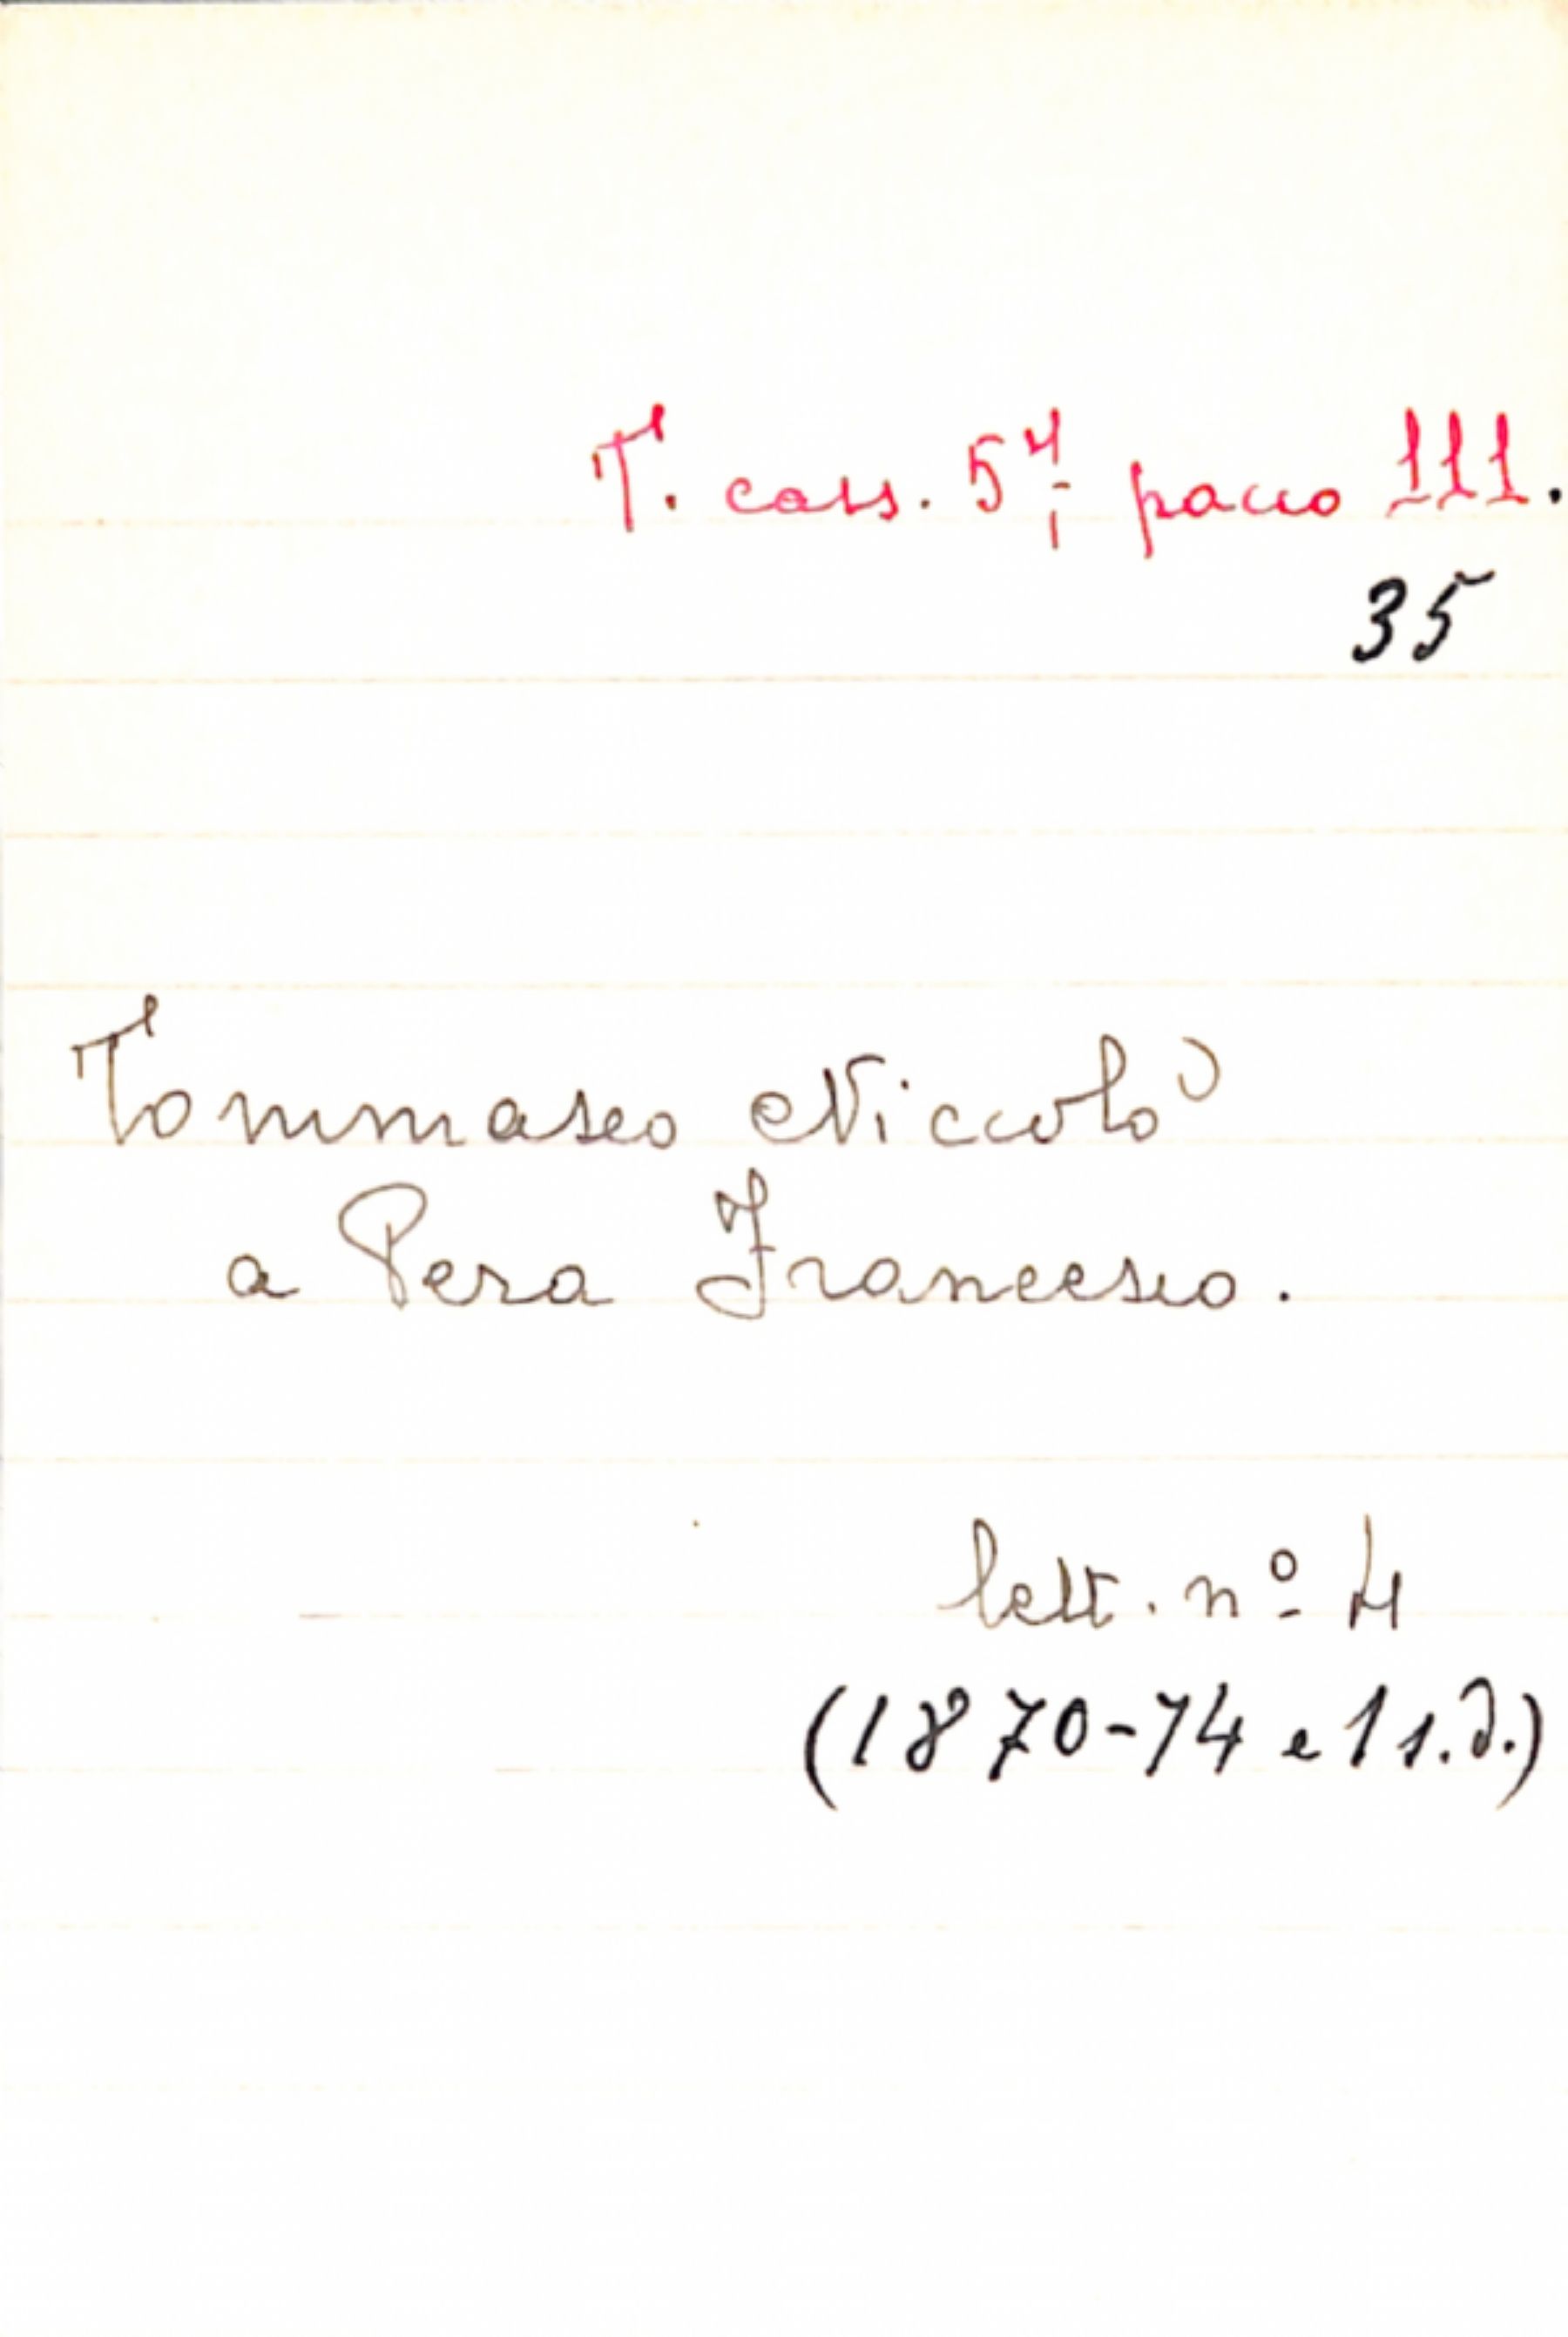 T. cass. 54; pacco III.
35
Tommaseo Niccolò
a Pera Francesco.
lett. nº 4
(1870-74 e 1 s.d.)